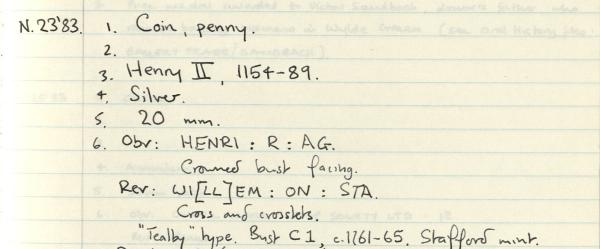 N.23'83. 1. Coin, penny.
2.
3. Henry II, 1154-89.
4. Silver.
5. 20 mm.
6. Obv: HENRI : R : AG.
Crowned bust facing.
Rev: WI[LL]EM : ON : STA.
Cross and crosslets.
"Tealby" type. Bust C1, c.1161-65. Stafford mint.